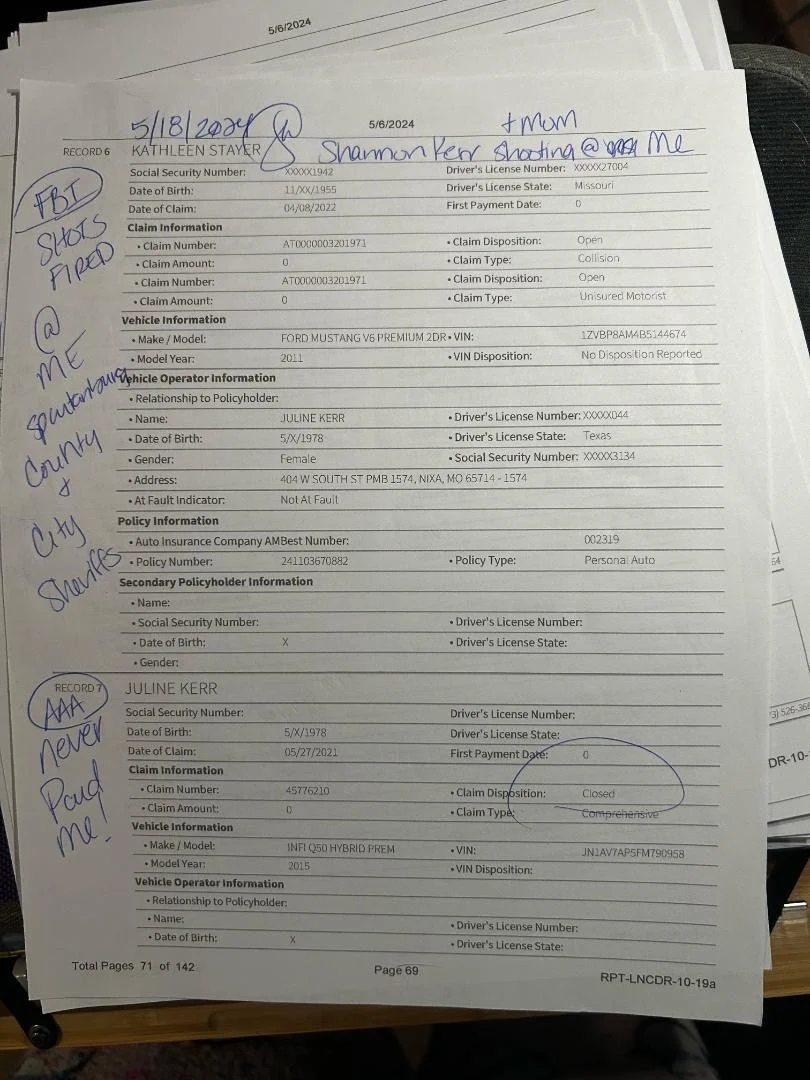 5/6/2024
5/18/2024
5/6/2024
+ Mom
RECORD 6 KATHLEEN STAYER
Shannon Kerr shooting @ Me
Social Security Number: XXXXX1942 Driver's License Number: XXXXX27004
Date of Birth: 11/XX/1955 Driver's License State: Missouri
Date of Claim: 04/08/2022 First Payment Date: 0
Claim Information
• Claim Number: AT0000003201971 • Claim Disposition: Open
• Claim Amount: 0 • Claim Type: Collision
• Claim Number: AT0000003201971 • Claim Disposition: Open
• Claim Amount: 0 • Claim Type: Unisured Motorist
Vehicle Information
• Make / Model: FORD MUSTANG V6 PREMIUM 2DR • VIN: 1ZVBP8AM4B5144674
• Model Year: 2011 • VIN Disposition: No Disposition Reported
Vehicle Operator Information
• Relationship to Policyholder:
• Name: JULINE KERR • Driver's License Number: XXXXX044
• Date of Birth: 5/X/1978 • Driver's License State: Texas
• Gender: Female • Social Security Number: XXXXX3134
• Address: 404 W SOUTH ST PMB 1574, NIXA, MO 65714 - 1574
• At Fault Indicator: Not At Fault
Policy Information
• Auto Insurance Company AMBest Number: 002319
• Policy Number: 241103670882 • Policy Type: Personal Auto
Secondary Policyholder Information
• Name:
• Social Security Number: • Driver's License Number:
• Date of Birth: X • Driver's License State:
• Gender:
FBI
SHOTS
FIRED
@
ME
Spartanburg
County
+
City
Sheriffs
RECORD 7 JULINE KERR
Social Security Number: Driver's License Number:
Date of Birth: 5/X/1978 Driver's License State:
Date of Claim: 05/27/2021 First Payment Date: 0
Claim Information
• Claim Number: 45776210 • Claim Disposition: Closed
• Claim Amount: 0 • Claim Type: Comprehensive
Vehicle Information
• Make / Model: INFI Q50 HYBRID PREM • VIN: JN1AV7AP5FM790958
• Model Year: 2015 • VIN Disposition:
Vehicle Operator Information
• Relationship to Policyholder:
• Name: • Driver's License Number:
• Date of Birth: X • Driver's License State:
AAA
never
Paid
me!
Total Pages 71 of 142 Page 69 RPT-LNCDR-10-19a